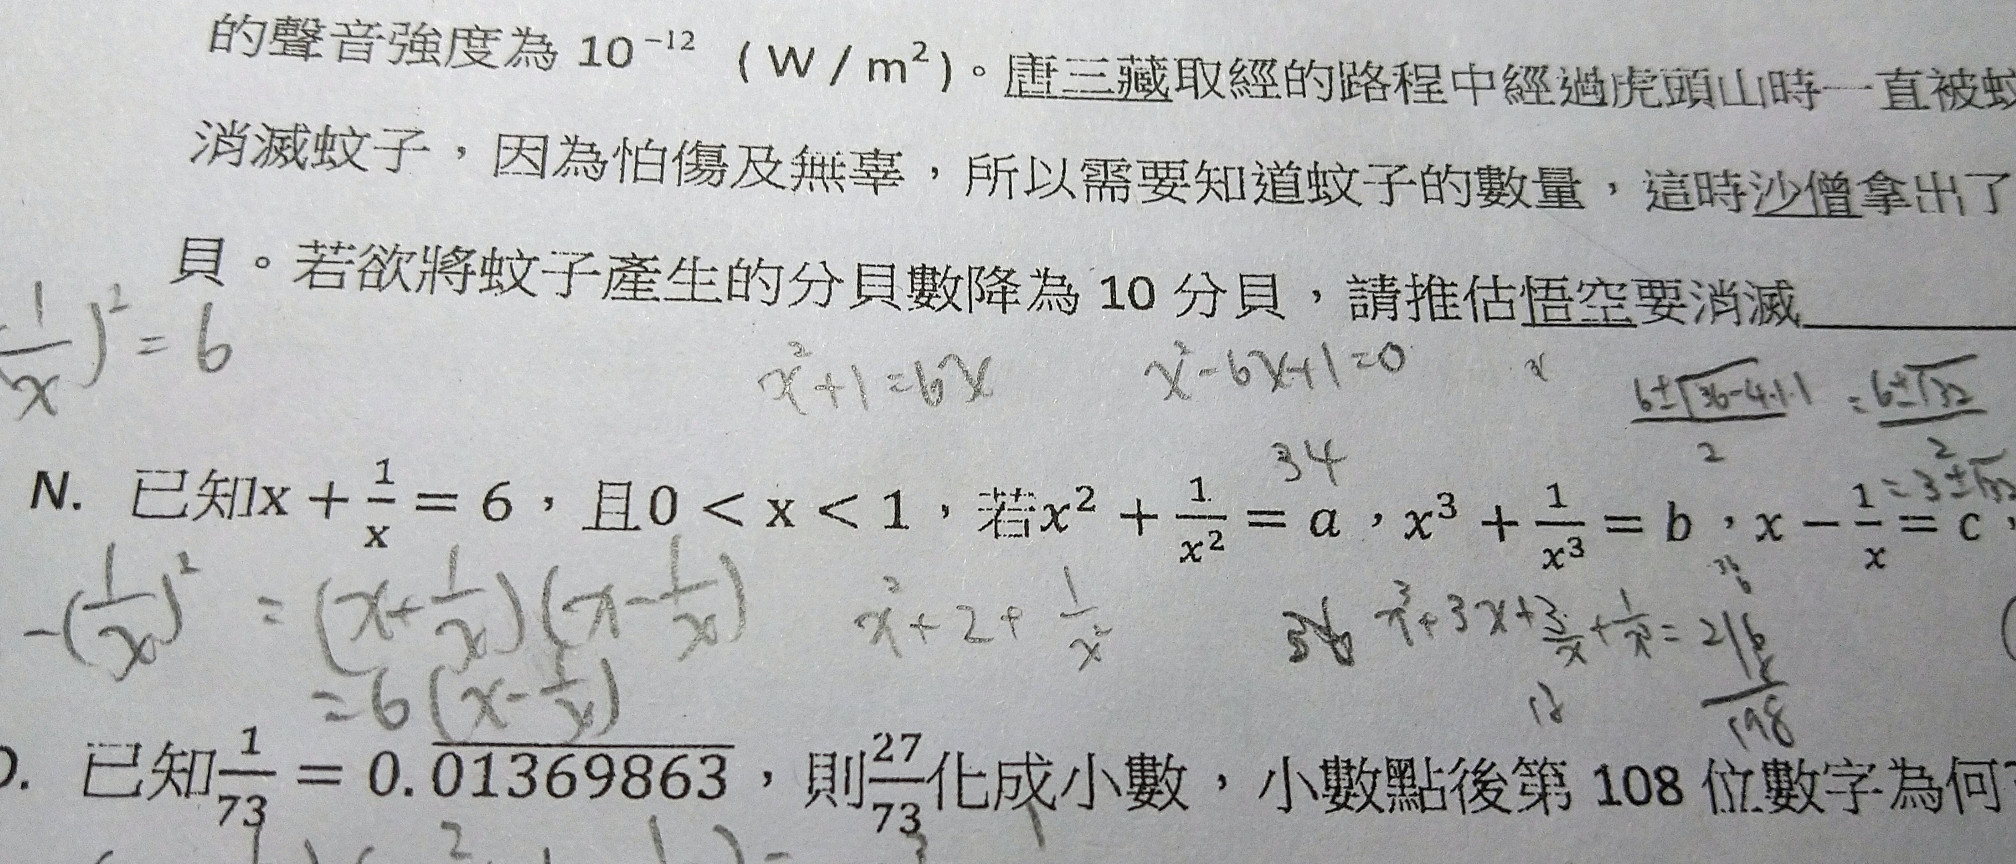 的聲音強度為 10⁻¹² (W / m²)。唐三藏取經的路程中經過虎頭山時一直被蚊
消滅蚊子，因為怕傷及無辜，所以需要知道蚊子的數量，這時沙僧拿出了
貝。若欲將蚊子產生的分貝數降為 10 分貝，請推估悟空要消滅
1/x)² = 6
x²+1=6x x²-6x+1=0 x (6±√(36-4·1·1))/2 = (6±√32)/2
34 = 3±
N. 已知x + 1/x = 6，且0 < x < 1，若x² + 1/x² = a，x³ + 1/x³ = b，x − 1/x = c，
-(1/x)² = (x+1/x)(x-1/x) x²+2+1/x² 36 x³+3x+3/x+1/x³=216
=6(x-1/x) 18 198
已知1/73 = 0.0̅1̅3̅6̅9̅8̅6̅3̅，則27/73化成小數，小數點後第 108 位數字為何